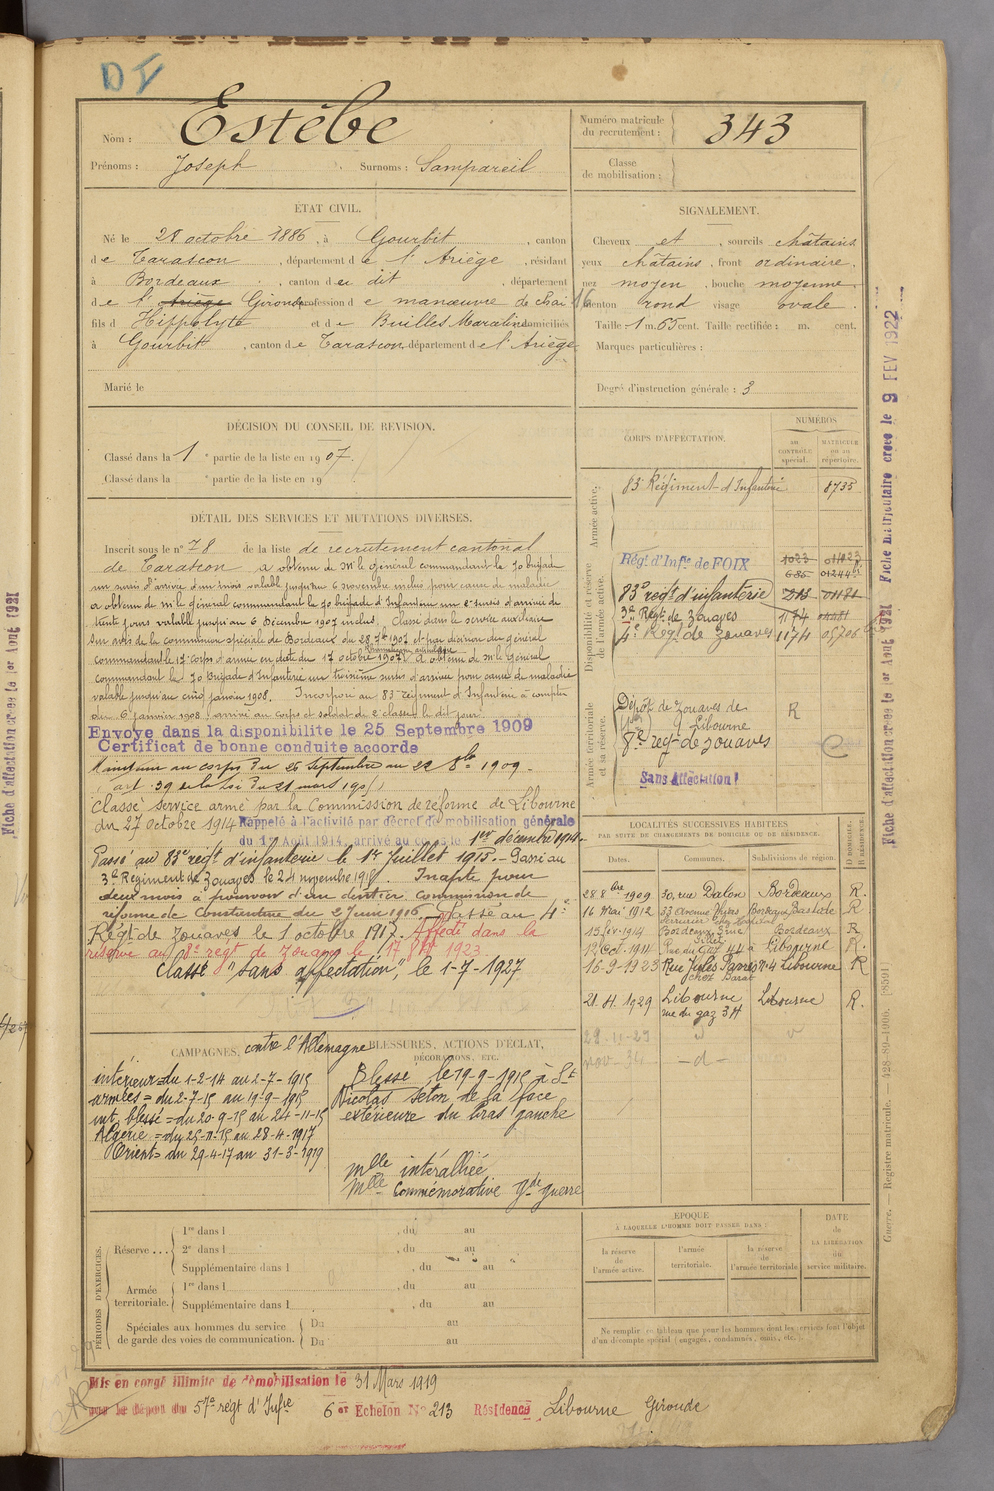 DI
Nom : Estèbe
Prénoms : Joseph . Surnoms : Sampareil
Numéro matricule du recrutement : 343
Classe de mobilisation :
ÉTAT CIVIL.
Né le 28 octobre 1886, à Gourbit, canton
de Tarascon, département de l'Ariège, résidant
à Bordeaux, canton du dit, département
de l'Ariège Gironde profession de manœuvre de chai
fils d Hippolyte et de Builles Marceline domiciliés
à Gourbit, canton de Tarascon département de l'Ariège
Marié le
SIGNALEMENT.
Cheveux et , sourcils châtains
yeux châtains, front ordinaire,
nez moyen, bouche moyenne
menton rond visage ovale.
Taille 1 m. 65 cent. Taille rectifiée : m. cent.
16
Marques particulières :
Degré d'instruction générale : 3
DÉCISION DU CONSEIL DE REVISION.
Classé dans la 1 e partie de la liste en 1907.
Classé dans la e partie de la liste en 19
DÉTAIL DES SERVICES ET MUTATIONS DIVERSES.
Inscrit sous le n° 78 de la liste de recrutement cantonal
de Tarascon, a obtenu de Mr le général commandant la 70 brigade
un sursis d'arrivée d'un mois valable jusqu'au 6 novembre inclus pour cause de maladie
a obtenu de mr le général commandant la 70 brigade d'Infanterie un 2e sursis d'arrivée de
trente jours valable jusqu'au 6 Décembre 1907 inclus. Classé dans le service auxiliaire
sur avis de la commission spéciale de Bordeaux du 28 7bre 1907 et par décision du général
commandant le 17e corps d'armée en date du 17 octobre 1907. A obtenu de mr le Général
commandant la 70 Brigade d'Infanterie un troisième sursis d'arrivée pour cause de maladie
valable jusqu'au cinq janvier 1908. Incorporé au 83e régiment d'Infanterie à compter
du 6 janvier 1908, arrivé au corps et soldat de 2e classe le dit jour.
Envoyé dans la disponibilité le 25 Septembre 1909
Certificat de bonne conduite accordé
Maintenu au corps du 26 Septembre au 22 8bre 1909.
(art. 39 de la loi du 21 mars 1905)
Classé service armé par la Commission de réforme de Libourne
du 27 octobre 1914 Rappelé à l'activité par décret de mobilisation générale
du 1er Août 1914, arrivé au corps le 1er décembre 1914.
Passé au 83e régt d'infanterie le 1er Juillet 1915. Passé au
3e Régiment de Zouaves le 24 novembre 1915. Inapte pour
deux mois à pourvoir d'un dentier commission de
réforme de Constantine du 2 Juin 1916. Passé au 4e
Régt de Zouaves le 1 octobre 1917. Affecté dans la
réserve au 8e régt de Zouaves le 17 8bre 1923.
Classé "sans affectation", le 1-7-1927
CORPS D'AFFECTATION.
NUMÉROS
au CONTRÔLE spécial.
MATRICULE ou au répertoire.
Armée active.
83e Régiment d'Infanterie 8735
Disponibilité et réserve de l'armée active.
Régt d'Infie de FOIX 1023 011023
685 01244
83e regt d'infanterie 213 01181
3e Régt de Zouaves 1174
4e Régt de Zouaves 1174
Armée territoriale et sa réserve.
Dépôt de Zouaves de
Libourne R
8e reg-de zouaves
Sans Affectation !
LOCALITÉS SUCCESSIVES HABITÉES
PAR SUITE DE CHANGEMENTS DE DOMICILE OU DE RÉSIDENCE.
Dates. Communes. Subdivisions de région. D DOMICILE, R RÉSIDENCE.
28 8bre 1909 30, rue Dalon Bordeaux R.
16 Mai 1912 33 Avenue Thiers Bordeaux Bastide R
15 fév-1914 Bordeaux, Bordeaux R
12 Oct. 1914 Rue du Gaz 44 à Libourne R.
16-9-1923 Rue Jules Favre n° 4 Libourne R
chez Barat
21. 11 1929 Libourne Libourne R.
rue du gaz 34
nov-34 -d-
CAMPAGNES. contre l'Allemagne
intérieur = du 1-2-14 au 2-7-1915
armées = du 2-7-15 au 19-9-1915
int. blessé = du 20-9-15 au 24-11-15
Algérie = du 25-11-15 au 28-4-1917
Orient = du 29-4-17 au 31-3-1919
BLESSURES, ACTIONS D'ÉCLAT, DÉCORATIONS, ETC.
Blessé, le 19-9-1915 à St
Nicolas séton de la face
extérieure du bras gauche
mlle interalliée
Mlle Commémorative gde guerre
PÉRIODES D'EXERCICES.
Réserve ...
1re dans l , du au
2e dans l , du au
Supplémentaire dans l , du au
Armée territoriale.
1re dans l , du au
Supplémentaire dans l , du au
Spéciales aux hommes du service de garde des voies de communication.
Du au
Du au
ÉPOQUE
À LAQUELLE L'HOMME DOIT PASSER DANS :
la réserve de l'armée active.
l'armée territoriale.
la réserve de l'armée territoriale
DATE de LA LIBÉRATION du service militaire.
Ne remplir ce tableau que pour les hommes dont les services font l'objet d'un décompte spécial (engagés, condamnés, omis, etc.)
Mis en congé illimité de démobilisation le 31 Mars 1919
par le dépôt du 57e régt d'Infie 6e Echelon N° 213 Résidence Libourne Gironde
Fiche d'affectation créée le 1er Août 1921 Fiche matriculaire créée le 9 FEV 1922
Guerre. — Registre matricule. — 428-89-1906. [8591]
Fiche d'affectation créée le 1er Août 1921